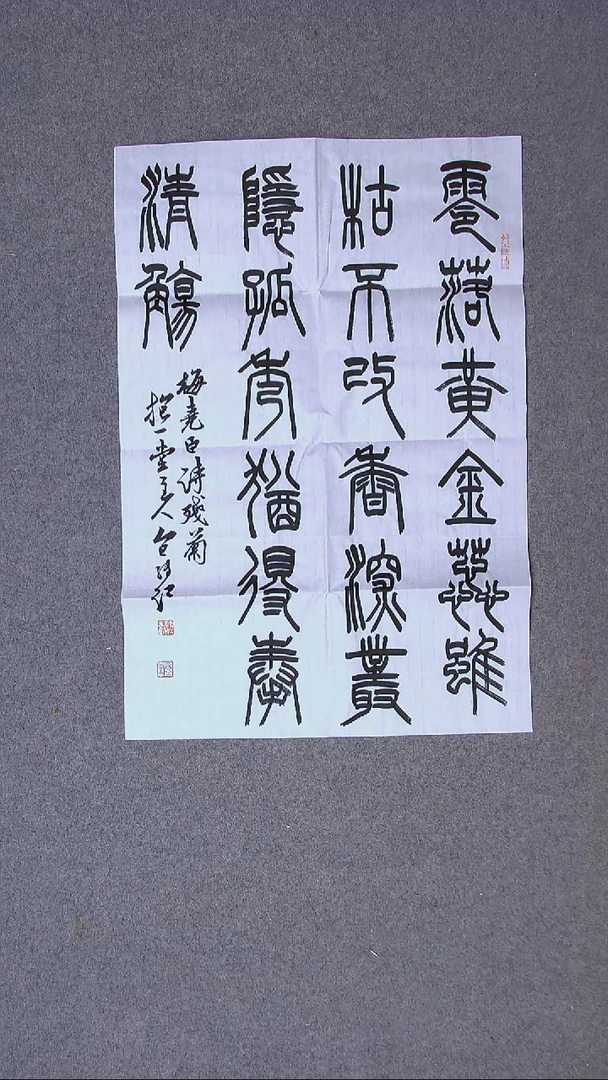 零落黃金蕊雖
枯不改香深叢
隱孤秀猶得奉
清觴
梅堯臣詩殘菊
抱一堂主人